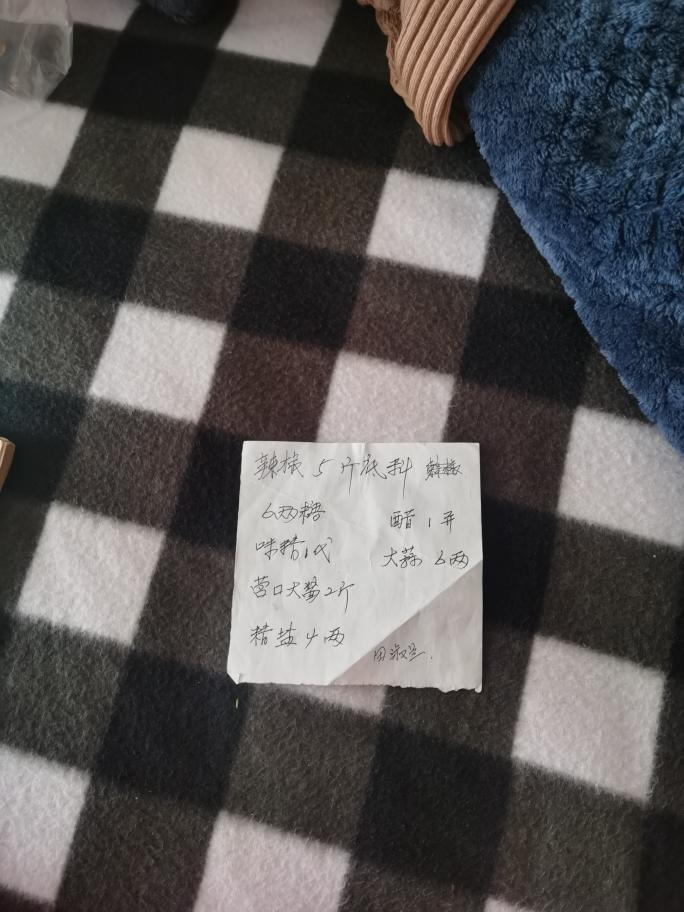 辣椒 5斤底料
6两糖 醋 1斤
味精1代 大蒜 6两
营口大酱2斤
精盐 4两
田淑兰.